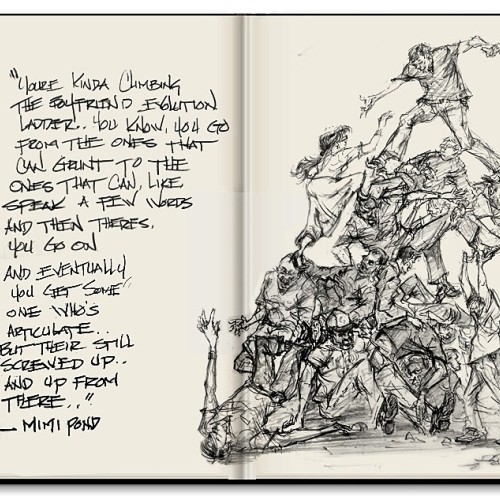 "YOU'RE KINDA CLIMBING
THE BOYFRIEND EVOLUTION
LADDER.. YOU KNOW, YOU GO
FROM THE ONES THAT
CAN GRUNT TO THE
ONES THAT CAN, LIKE
SPEAK A FEW WORDS
AND THEN THERES,
YOU GO ON
AND EVENTUALLY
YOU GET SOME"
ONE WHO'S
ARTICULATE..
BUT THEIR STILL
SCREWED UP..
AND UP FROM
THERE.."
— MIMI POND